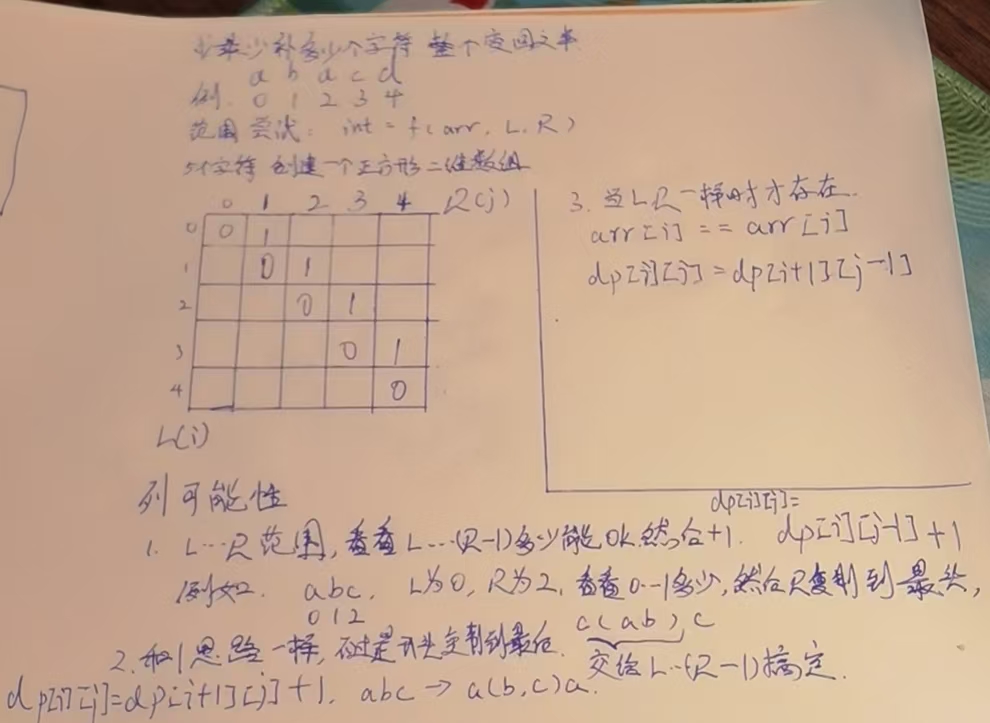 少补多少个字符 整个变回文串
a b a c d
例. 0 1 2 3 4
范围尝试: int = f(arr, L, R)
5个字符 创建一个正方形二维数组
0 1 2 3 4 R(j)
0 0 1
1 0 1
2 0 1
3 0 1
4 0
L(i)
3. 当L R一样时才存在.
arr[i] == arr[j]
dp[i][j] = dp[i+1][j-1]
列可能性
dp[i][j]=
1. L…R范围, 看看L…(R-1)多少能ok, 然后+1. dp[i][j-1]+1
例如. abc, L为0, R为2, 看看0-1多少, 然后R复制到最头,
0 1 2
c(ab)c
2. 和1思路一样, 不过是开头复制到最后.
交给L…(R-1)搞定.
dp[i][j]=dp[i+1][j]+1. abc → a(b,c)a.